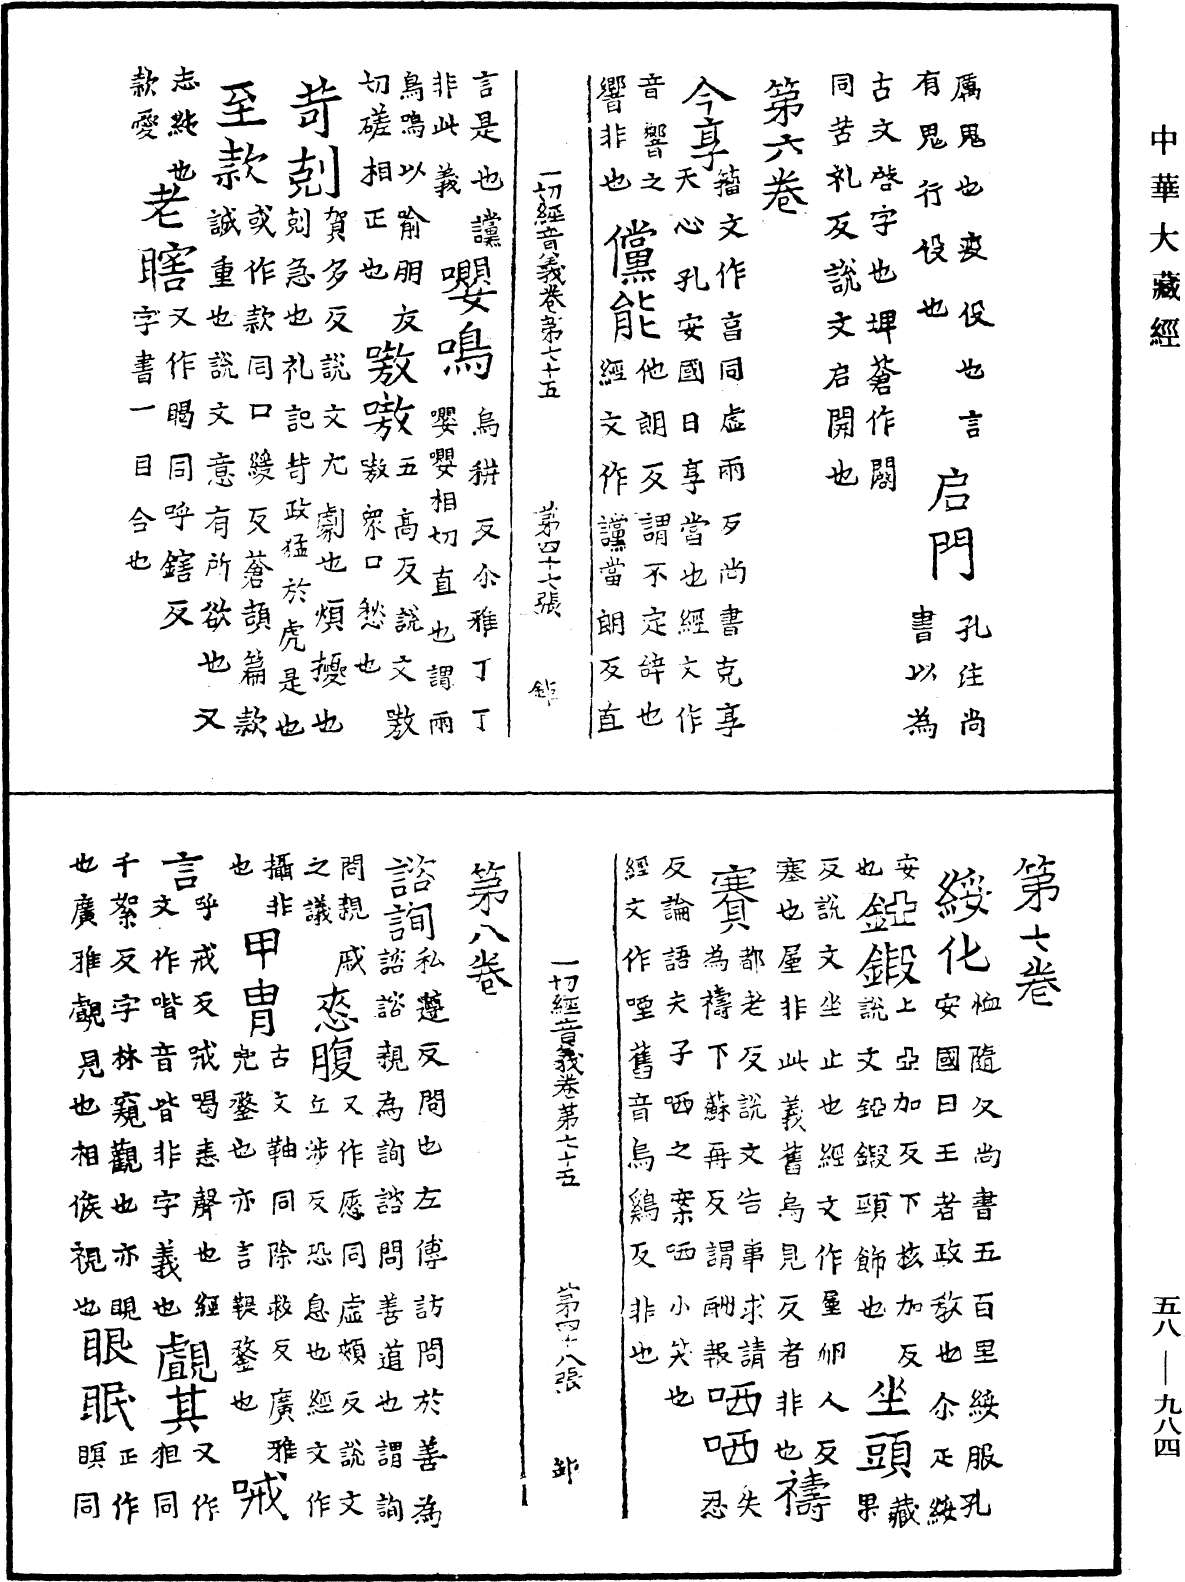 中華大藏經
厲鬼也疫伇也言
有鬼行伇也
启門
孔注尚
書以為
古文啓字也埤蒼作闙
同苦礼反說文启開也
第六卷
今享
籀文作亯同虛兩歹尚書克享
天心孔安國曰享當也經文作
音響之
響非也
儻能
他朗反謂不定辝也
經文作讜當朗反直
一切經音義卷第七十五 第四十七張
言是也讜
非此義
嚶鳴
烏耕反尒雅丁丁
嚶嚶相切直也謂兩
鳥鳴以喻朋友
切磋相正也
嗷嗷
五高反說文嗷
嗷衆口愁也
苛剋
賀多反說文尤劇也煩擾也
剋急也礼記苛政猛於虎是也
至款
或作款同口緩反蒼頡篇款
誠重也說文意有所欲也又
志純也
款愛
老瞎
又作䁍同呼鎋反
字書一目合也
第七卷
綏化
恤隨反尚書五百里綏服孔
安國曰王者政教也尒疋綏
安
也
錏鍜
上亞加反下核加反
說文錏鍜頸飾也
坐頭
藏
果
反說文坐止也經文作垕卵人反
塞也垕非此義舊烏見反者非也
禱
賽
都老反說文告事求請
為禱下蘇再反謂酬報
哂哂
失
忍
反論語夫子哂之案哂小笑也
經文作唖舊音烏鷄反非也
一切經音義卷第七十五 第四十八張
第八卷
諮詢
私遵反問也左傳訪問於善為
諮諮親為詢諮問善道也謂詢
問親戚
之議
恣腹
又作愿同虛頰反說文
丘涉反恐息也經文作
攝非
也
甲冑
古文䩜同除救反廣雅
兜鍪也亦言鞎鍪也
喊
言
呼戒反喊喝恚聲也經
文作喈音皆非字義也
覰其
又作
狙同
千絮反字林窺觀也亦覞
也廣雅覰見也相候視也
眼眠
正作
瞑同
五八—九八四